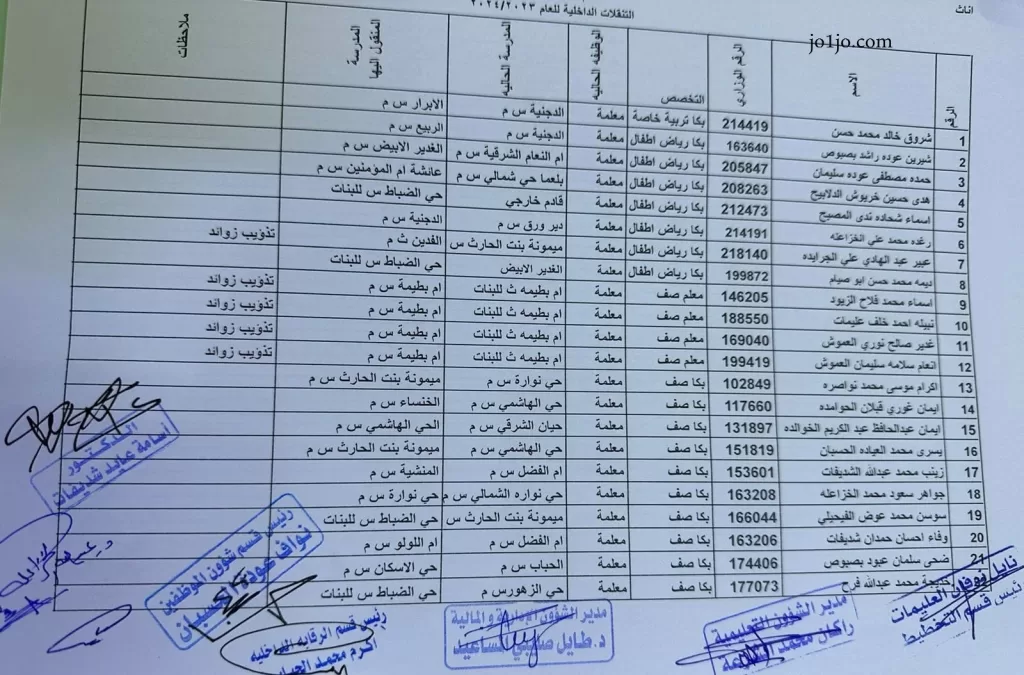 التنقلات الداخلية للعام ٢٠٢٤/٢٠٢٣
اناث
jo1jo.com
الرقم الاسم الرقم الوزاري التخصص الوظيفه الحاليه المدرسة الحاليه المدرسة المنقول اليها ملاحظات
1 شروق خالد محمد حسن 214419 بكا تربية خاصة معلمة الدجنية س م الابرار س م
2 شيرين عوده راشد بصبوص 163640 بكا رياض اطفال معلمة الدجنية س م الربيع س م
3 حمده مصطفى عوده سليمان 205847 بكا رياض اطفال معلمة ام النعام الشرقية س م الغدير الابيض س م
4 هدى حسين خريوش الدلابيح 208263 بكا رياض اطفال معلمة بلعما حي شمالي س م عائشة ام المؤمنين س م
5 اسماء شحاده ندى المصبح 212473 بكا رياض اطفال معلمة قادم خارجي حي الضباط س للبنات
6 رغده محمد علي الخزاعله 214191 بكا رياض اطفال معلمة دير ورق س م الدجنية س م
7 عبير عبد الهادي علي الجرايده 218140 بكا رياض اطفال معلمة ميمونة بنت الحارث س الفدين ث م تذؤيب زوائد
8 ديمه محمد حسن ابو صيام 199872 بكا رياض اطفال معلمة الغدير الابيض حي الضباط س للبنات
9 اسماء محمد فلاح الزيود 146205 معلم صف معلمة ام بطيمه ث للبنات ام بطيمة س م تذؤيب زوائد
10 نبيله احمد خلف عليمات 188550 معلم صف معلمة ام بطيمه ث للبنات ام بطيمة س م تذؤيب زوائد
11 غدير صالح نوري العموش 169040 معلم صف معلمة ام بطيمه ث للبنات ام بطيمة س م تذؤيب زوائد
12 انعام سلامه سليمان العموش 199419 معلم صف معلمة ام بطيمه ث للبنات ام بطيمة س م تذؤيب زوائد
13 اكرام موسى محمد نواصره 102849 بكا صف معلمة حي نوارة س م ميمونة بنت الحارث س م
14 ايمان غوري قبلان الحوامده 117660 بكا صف معلمة حي الهاشمي س م الخنساء س م
15 ايمان عبدالحافظ عبد الكريم الخوالده 131897 بكا صف معلمة حيان الشرقي س م الحي الهاشمي س م
16 يسرى محمد العياده الحسبان 151819 بكا صف معلمة حي الهاشمي س م ميمونة بنت الحارث س م
17 زينب محمد عبدالله الشديفات 153601 بكا صف معلمة ام الفضل س م المنشية س م
18 جواهر سعود محمد الخزاعله 163208 بكا صف معلمة حي نواره الشمالي س م حي نوارة س م
19 سوسن محمد عوض الفيحيلي 166044 بكا صف معلمة ميمونة بنت الحارث س حي الضباط س للبنات
20 وفاء احسان حمدان شديفات 163206 بكا صف معلمة ام الفضل س م ام اللولو س م
21 ضحى سلمان عبود بصبوص 174406 بكا صف معلمة الحباب س م حي الاسكان س م
خديجة محمد عبدالله فرح 177073 بكا صف معلمة حي الزهورس م حي الضباط س للبنات
الدكتور
أسامة عايد شديفات
رئيس قسم شؤون الموظفين
نواف عودة الحسبان
رئيس قسم الرقابه الداخليه
اكرم محمد
مدير الشؤون الإدارية و المالية
د. طايل
مدير الشؤون التعليمية
راكان محمد
نايل نوفان العليمات
رئيس قسم التخطيط